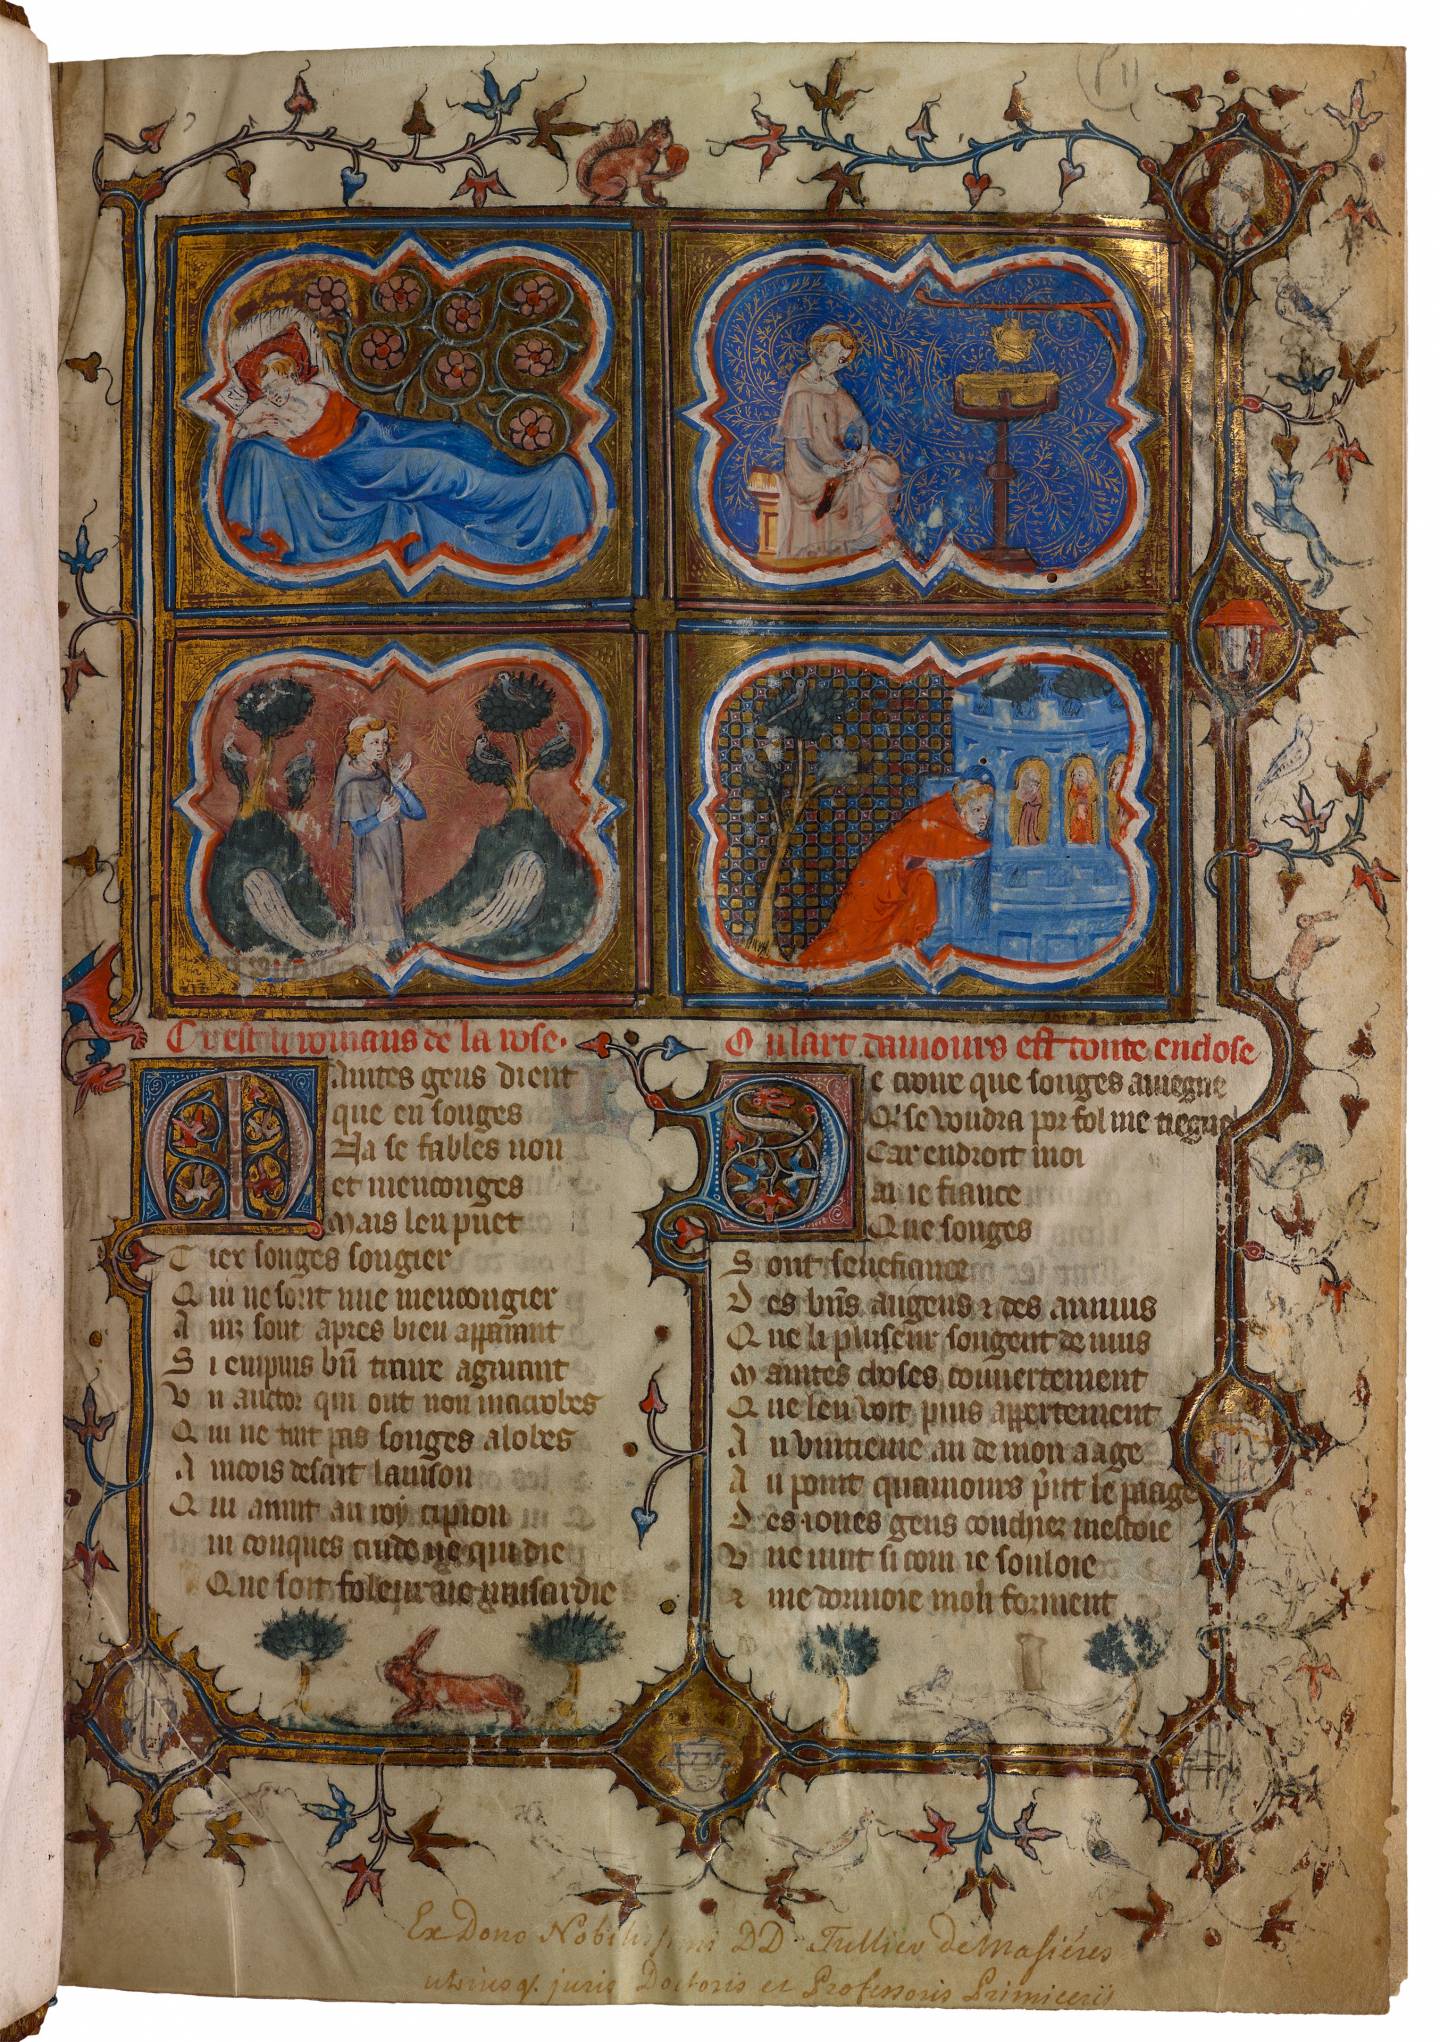 C i est li romans de la rose.
O u lart damours est toute enclose
Maintes gens dient
que en songes
Na se fables non
et menconges
Mais len puet
T iex songes songier
Q ui ne sont mie mencongier
A inz sont apres bien apparant
S i en puis bn̄ traire a garant
U n auctor qui ot non macrobes
Q ui ne tint pas songes a lobes
A incois descrit lauision
Q ui auint au roy cipion
ui conques cuide ne qui die
Que soit foleur ne musardie
De croire que songes auiegne
Q' se voudra por fol me tiegne
Car endroit moi
ai ie fiance
Que songes
S oit senefiance
D es bn̄s as gens ⁊ des anuius
Q ue li pluseur songent de nuis
M aintes choses couuertement
Q ue len voit puis appertement
A u vintieme an de mon aage
A u point quamours p̄nt le paage
D es ioues gens couchiez mestoie
U ne nuit si com ie souloie
⁊ me dormoie moli forment
Ex Dono Nobilissimi DD Tulliev de Masiéres
utriusq. juris Doctoris et Professoris Primicerii